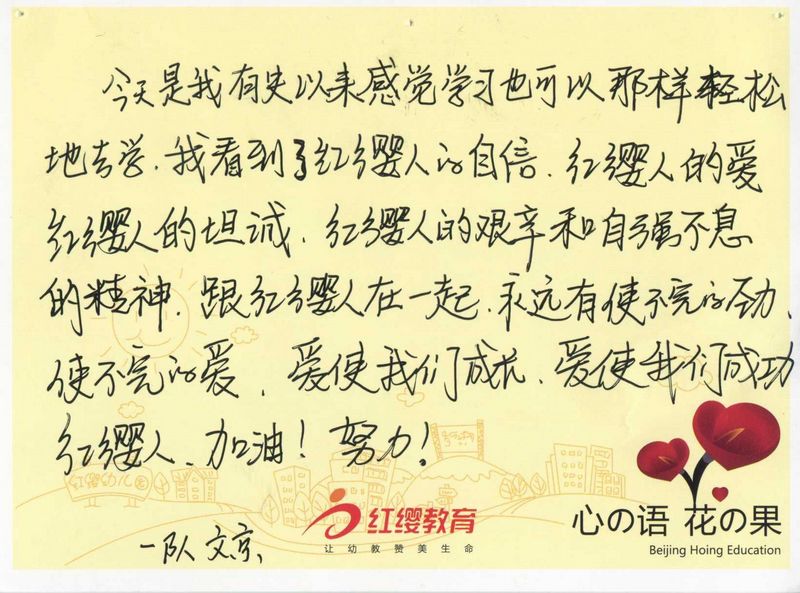 今天是我有史以来感觉学习也可以那样轻松
地去学.我看到了红缨人的自信.红缨人的爱
红缨人的坦诚.红缨人的艰辛和自强不息
的精神.跟红缨人在一起.永远有使不完的劲、
使不完的爱.爱使我们成长、爱使我们成功
红缨人、加油!努力!
红缨幼儿园
红缨教育
让幼教赞美生命
心の语 花の果
Beijing Hoing Education
一队 文京、